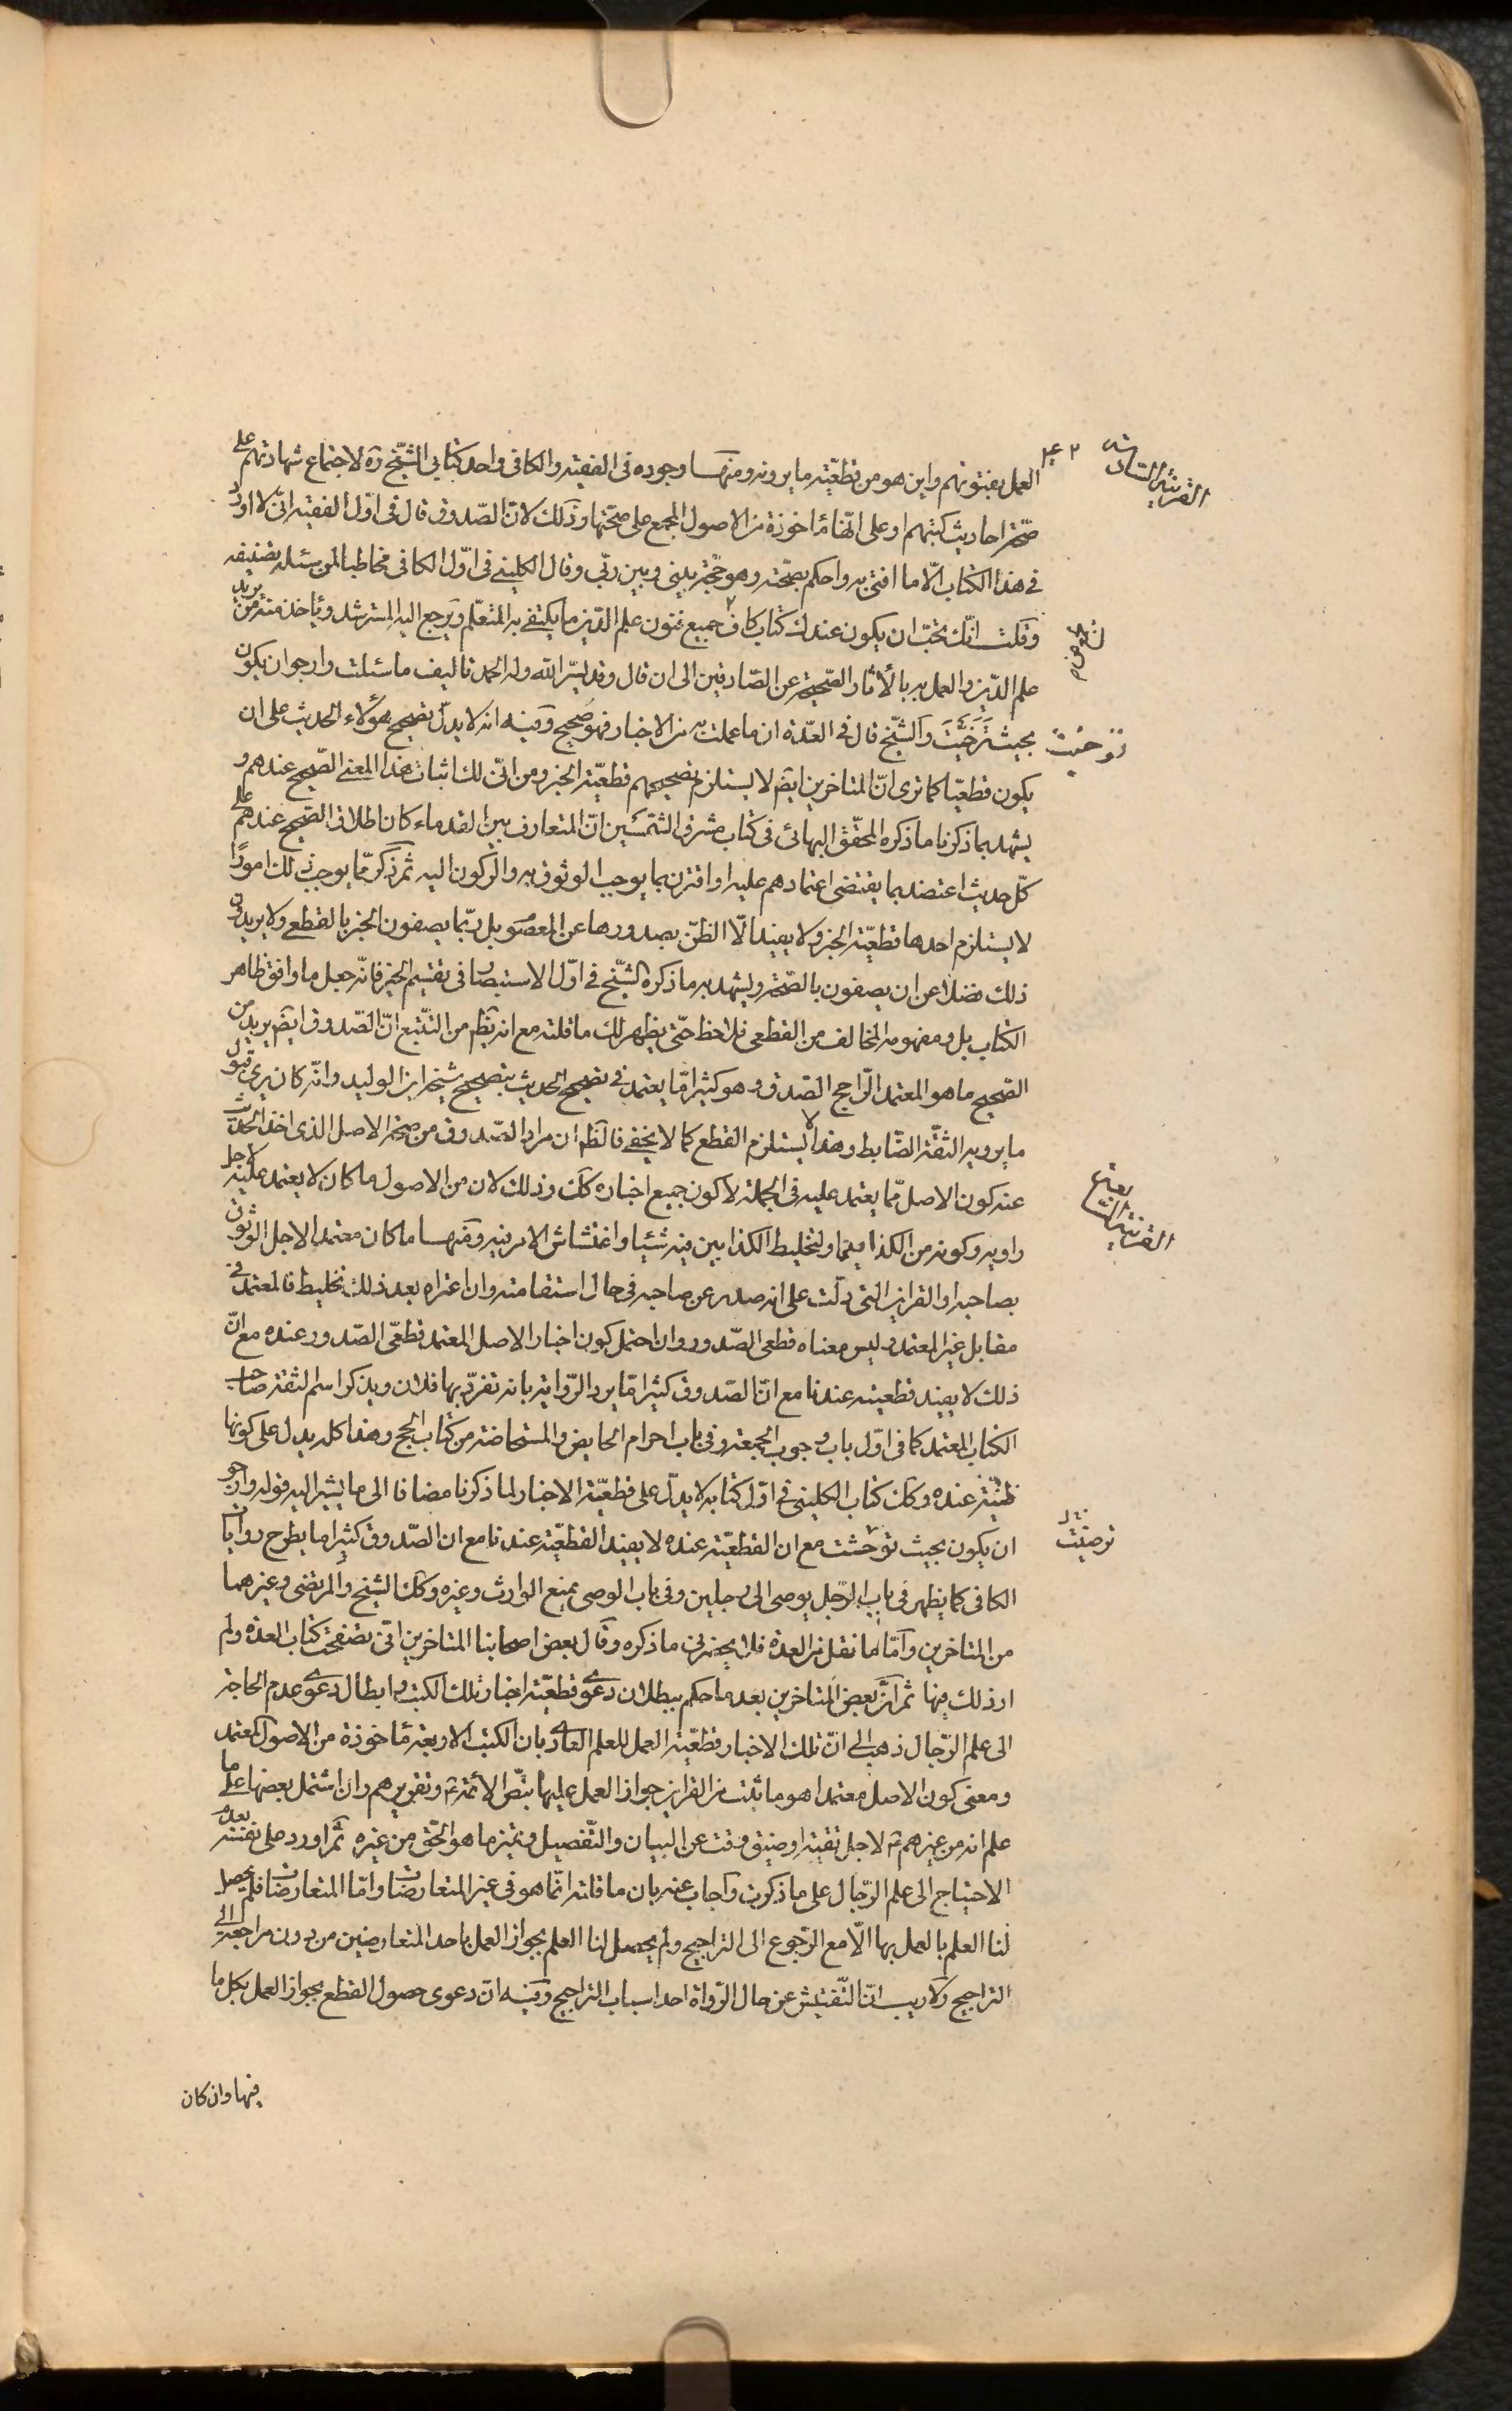 العمل بفتوتهم واين هو من قطعيّته ما يروونه ومنها وجوده فى الفقيه والكافى واحد كتابي الشيّخ ره لاجتماع شهادتهم على
صحّة احاديث كتبهم او على انّها مأخوذة من الاصول المجمع على صحّتها وذلك لانّ الصّدوق قال فى اوّل الفقيه انّى لا اورد
فى هذا الكتاب الّا ما افتى به واحكم بصحّته وهو حجّة بينى وبين ربّى وقال الكلينى فى اوّل الكافى مخاطبا لمن سئله تصنيفه
وقلت انّك تحبّ ان يكون عندك كتاب كاف جميع فنون علم الدّين ما يكتفى به المتعلّم ويرجع اليه المسترشد ويأخذ منه من يريد
علم الدّين والعمل به بالأثار الصّحيحة عن الصّادقين الى ان قال وقد يسّر الله وله الحمد تاليف ما سئلت وارجو ان يكون
بحيث توخّيت والشّيخ قال فى العدّة ان ما عملت به من الاخبار فهو صحيح وفيه انه لا يدلّ تصحيح هؤلاء الحديث على ان
يكون قطعيّا كما ترى انّ المتاخرين ايضا لا يستلزم تصحيحهم قطعيّة الخبر ومن انّى لك اثبات هذا المعنى الصّحيح عندهم و
يشهد بما ذكرنا ما ذكره المحقّق البهائى فى كتاب مشرق الشّمسين انّ المتعارف بين القدماء كان اطلاق الصّحيح عندهم على
كلّ حديث اعتضد بما يقتضى اعتمادهم عليه او اقترن بما يوجب الوثوق به والركون اليه ثم ذكر ممّا يوجب ذلك امورًا
لا يستلزم احدها قطعيّة الخبر ولا يفيد الّا الظنّ بصدورها عن المعصوم بل ربّما يصفون الخبر بالقطعى ولا يريدون
ذلك فضلا عن ان يصفون بالصّحة ويشهد به ما ذكره الشّيخ فى اوّل الاستبصار فى تقسيم الخبر فانّه جعل ما وافق ظاهر
الكتاب بل ومفهومه المخالف من القطعى فلاحظ حتّى يظهر لك ما قلته مع انه يظهر من التّتبع انّ الصّدوق ايضا يريد من
الصّحيح ما هو المعتمد الرّاجح الصّدق وهو كثيرا مّا يعتمد فى تصحيح الحديث بتصحيح شيخه ابن الوليد وانّه كان يرى قبول
ما يرويه الثقّة الضّابط وهذا لا يستلزم القطع كما لا يخفى فالظم ان مراد الصّدوق من صحّة الاصل الذى اخذ الحديث
عنه كون الاصل ممّا يعتمد عليه فى الجملة لا كون جميع اخباره كك وذلك لان من الاصول ما كان لا يعتمد عليه لاجل
راويه وكونه من الكذا ... او لتخليط الكذابين فيه شيئا واغتشاش الامر فيه ومنها ما كان معتمدا لاجل الوثوق
بصاحبه او القراين التى دلّت على انه صدر عن صاحبه فى حال استقامته وان اعتراه بعد ذلك تخليط فالمعتمد فى
مقابل غير المعتمد وليس معناه قطعى الصّدور وان احتمل كون اخبار الاصل المعتمد قطعى الصّدور عنده مع انّ
ذلك لا يفيد قطعيته عندنا مع انّ الصّدوق كثيرا مّا يرد الرّواية بانه تفرّد بها فلان ويذكر اسم الثقة صاحب
الكتاب المعتمد كما فى اوّل باب وجوب الجمعة وفى باب احرام الحايض والمستحاضة من كتاب الحج وهذا كله يدل على كونها
ظنيّة عنده وكك كتاب الكلينى فى اوّل كتابه لا يدلّ على قطعيّة الاخبار لما ذكرنا مضافا الى ما يشير اليه قوله وارجو
ان يكون بحيث توخّيت مع ان القطعيّة عنده لا يفيد القطعيّة عندنا مع ان الصّدوق كثيرا ما يطرح روايات
الكافى كما يظهر فى باب الرّجل يوصى الى رجلين وفى باب الوصى يمنع الوارث وغيره وكك الشيخ والمرتضى وغيرهما
من المتاخرين وامّا ما نقل من العدة فلا يحضرنى ما ذكره وقال بعض اصحابنا المتاخرين انّى تصفحت كتاب العدة ولم
ار ذلك فيها ثم انّ بعض المتاخرين بعد ما حكم ببطلان دعوى قطعيّة اخبار تلك الكتب وابطال دعوى عدم الحاجة
الى علم الرّجال ذهب الى انّ تلك الاخبار قطعيّة العمل للعلم العادى بان الكتب الاربعة مأخوذة من الاصول المعتمد
ومعنى كون الاصل معتمدا هو ما ثبت من القراين جواز العمل عليها بنصّ الأئمة ع وتقريرهم وان اشتمل بعضها على ما
علم انه من غيرهم ع لاجل تقية او ضيق وقت عن البيان والتّفصيل وتميز ما هو الحق من غيره ثم اورد على نفسه بعدم
الاحتياج الى علم الرّجال على ما ذكرت واجاب عنه بان ما قلته انّما هو فى غير المتعارضات وامّا المتعارضات فلم يحصل
لنا العلم بالعمل بها الّا مع الرّجوع الى التراجيح ولم يحصل لنا العلم بجواز العمل باحد المتعارضين من دون مراجعة الى
التراجيح ولا ريب انّ التّفتيش عن حال الرّواة احد اسباب التراجيح وفيه انّ دعوى حصول القطع بجواز العمل بكل ما
فيها وان كان
القرينة السادسة
توخيت
القرينة السابعة